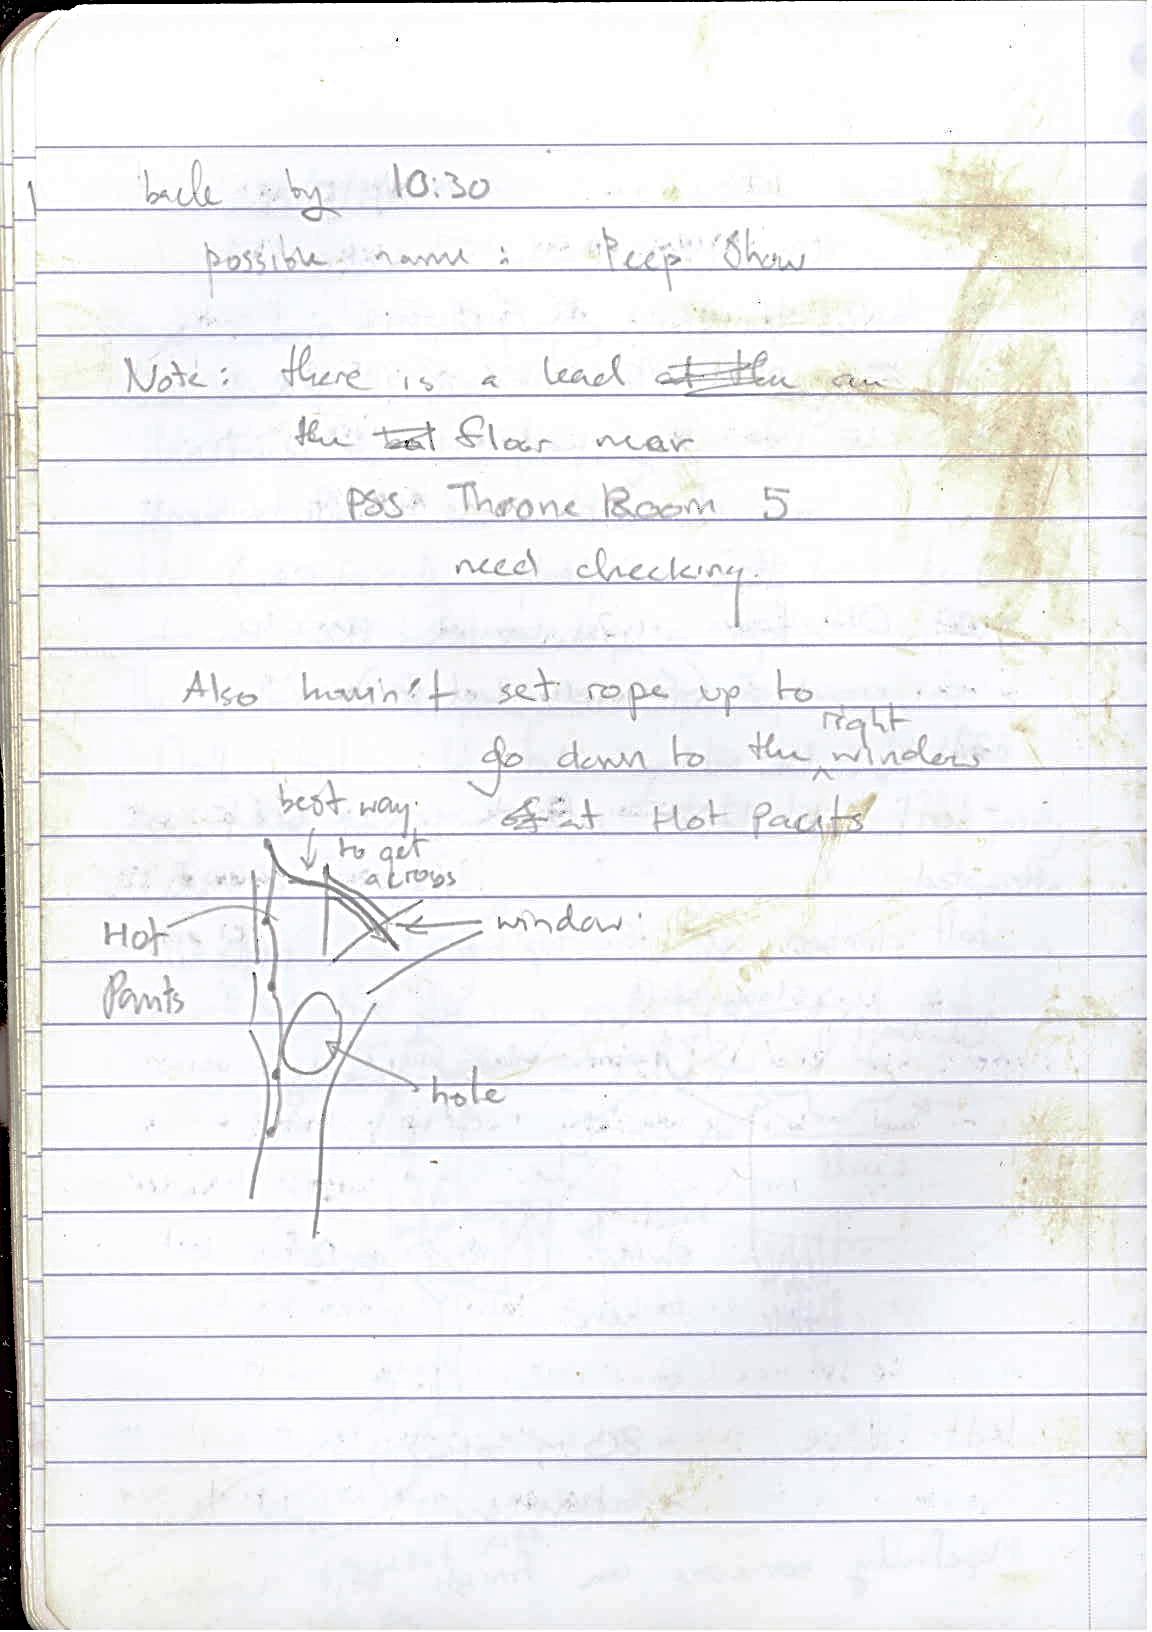 back by 10:30
possible name: Peep Show
Note: there is a lead at the on
the floor near
pss Throne Room 5
need checking.
Also havin't set rope up to
go down to the right windows
at Hot Pants
best way
to get
across
window
Hot
Pants
hole